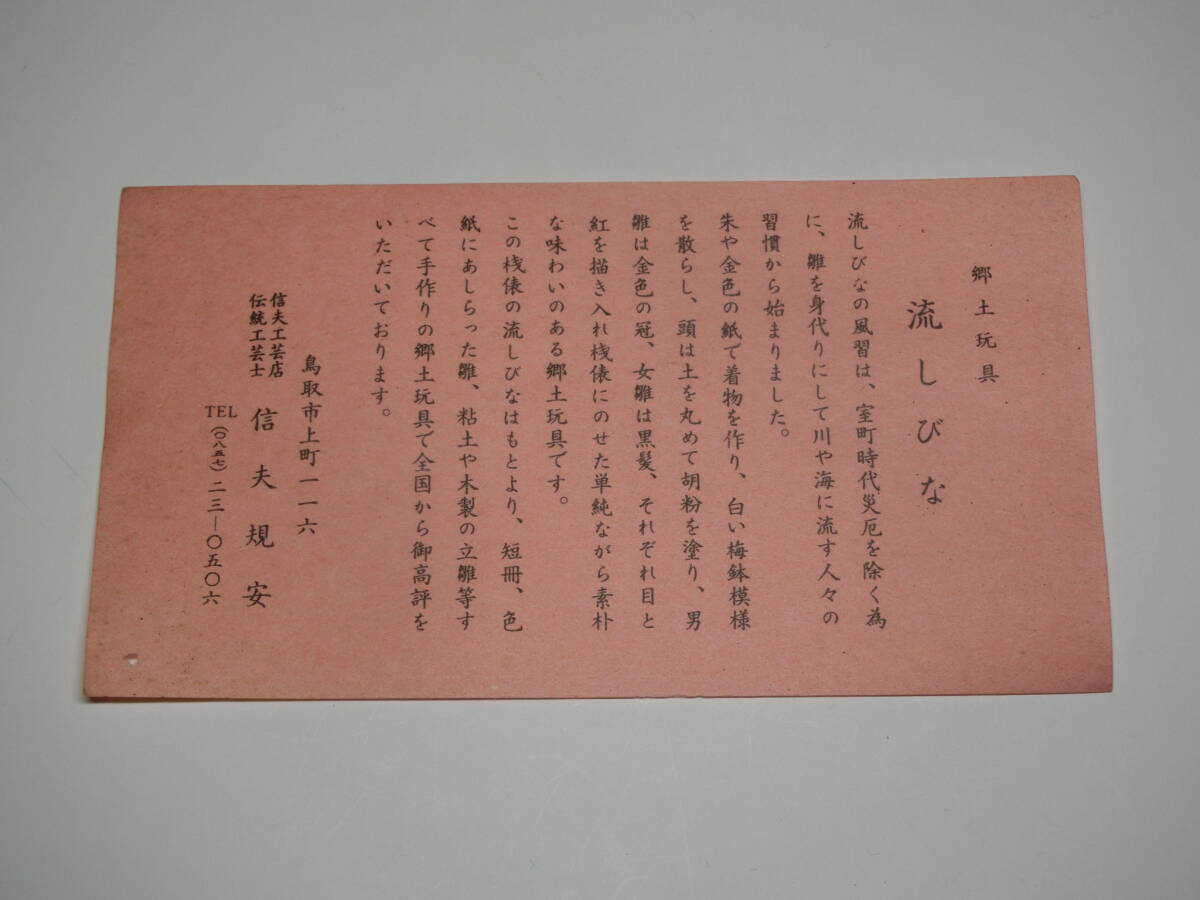 郷土玩具
流しびな
流しびなの風習は、室町時代災厄を除く為
に、雛を身代りにして川や海に流す人々の
習慣から始まりました。
朱や金色の紙で着物を作り、白い梅鉢模様
を散らし、頭は土を丸めて胡粉を塗り、男
雛は金色の冠、女雛は黒髪、それぞれ目と
紅を描き入れ桟俵にのせた単純ながら素朴
な味わいのある郷土玩具です。
この桟俵の流しびなはもとより、短冊、色
紙にあしらった雛、粘土や木製の立雛等す
べて手作りの郷土玩具で全国から御高評を
いただいております。
鳥取市上町一一六
信夫工芸店
伝統工芸士
信夫規安
TEL(〇八五七)二三―〇五〇六